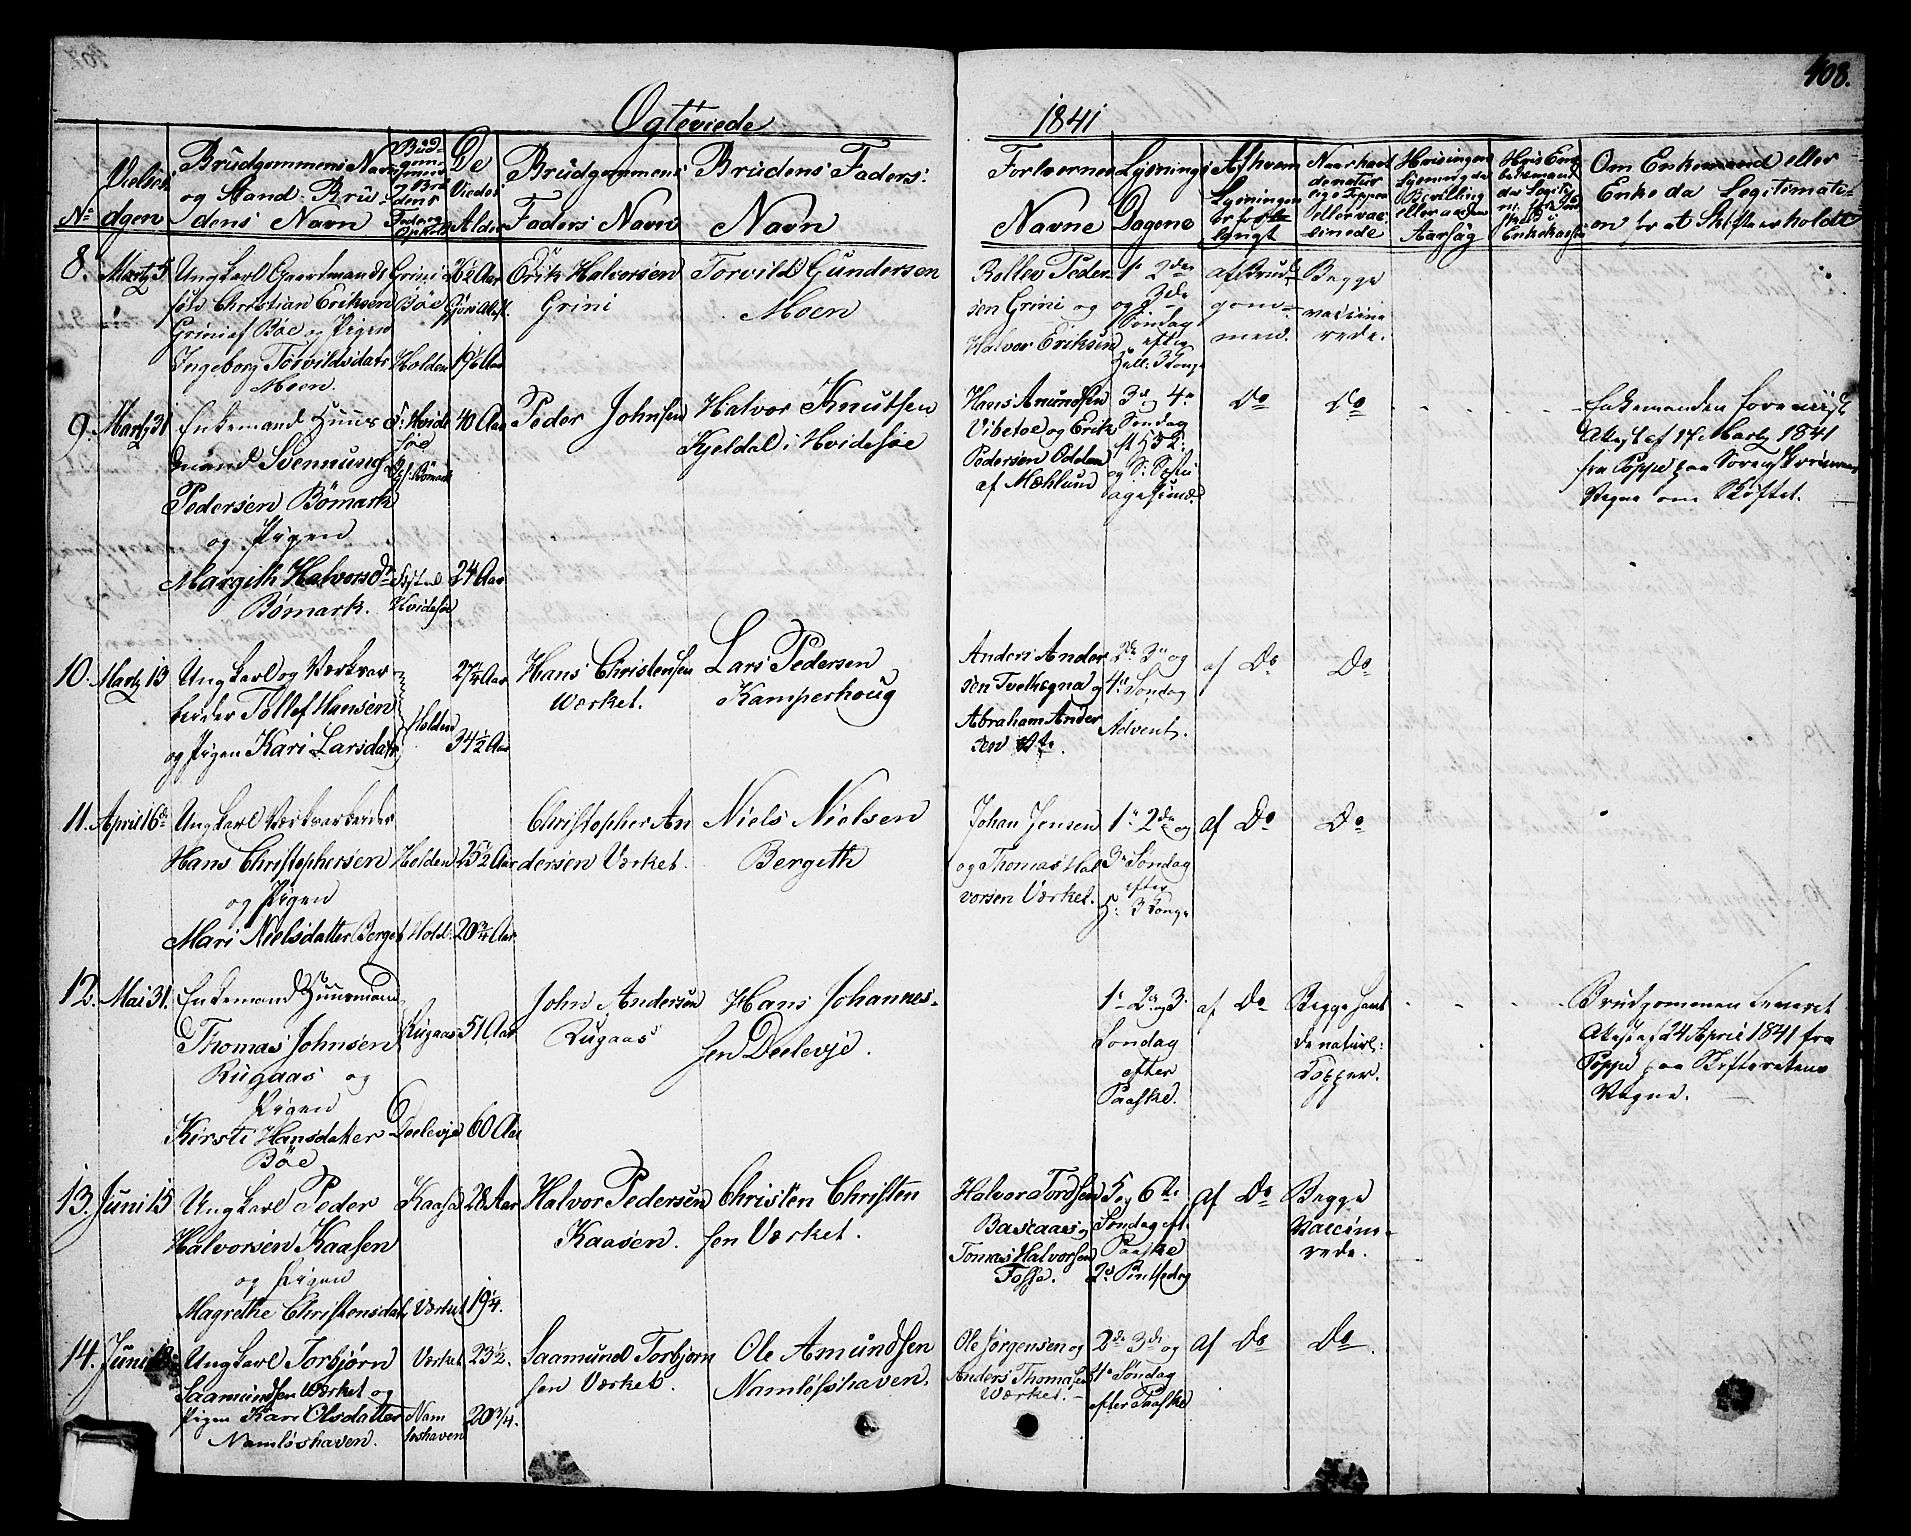 408.
Ægteviede
1841
No
Vielses
dgen
Brüdgommens Navn
og Stand. Brü
dens Navn
Brüd-
gom
mens
og Brü
dens
De
Viedes
Alder
Brüdgommens
Faders Navn
Brudens Faders
Navn
Forlovernes
Navne
Lysnings
Dagene
Af hvem
Lysningen
er forlangt
Naar havt
de natur
lige Kopper
eller vac
cinerede
Hvis ingen
Lysning da
Bevilling
eller anden
Aarsag
Om Enkemand eller
Enke da Legitimati-
on for at Skifte er holdt
8. Martz 5
Ungkarl Gaardmands
søn Christian Eriksen
Grini af Böe og Pigen
Ingeborg Torvildsdatr
Moen.
Grini
Böe
Holden
26½ Aar
19½ Aar
Erik Halvorsen
Grini
Torvild Gundersen
Moen
Rollev Peder
sen Grini og
Halvor Eriksen
1ste 2den
og 3de
Søndag
efter
Hell. 3 Konge
af Brüd
gom-
men.
Begge
vaccine
rede.
9. Martz 31
Enkemand Huus
mand Svennung
Pedersen Bömark
og Pigen
Margith Halvorsdr
Bömark.
Hvide
söe
Bömark
Hvidesöe
40 Aar
24 Aar
Peder Johnsen
Halvor Knutsen
Kjeldal i Hvidesöe
Hans Amundsen
Vibetoe og Erik
Pedersen Odden
af Mæhlum
3de og 4de
Søndag
Do
Do
Enkemanden foreviist
Attest af 17 Martz 1841
fra Poppe paa Sorenskriverens
Vegne om Skiftet.
10. Martz 13
Ungkarl og Værksar
beider Tollef Hansen
og Pigen Kari Larsdatr
Holden
27¼ Aar
34½ Aar
Hans Christensen
Værket.
Lars Pedersen
Kamperhoug
Anders Ander
sen Tveitegna og
Abraham Ander
sen
2de 3de og
4de Søndag
Advent.
af Do
Do
11. April 16de
Ungkarl Værksarbeider
Hans Christophersen
og Pigen
Mari Nielsdatter Berget
Holden
Hold:
25½ Aar
20¾ Aar
Christopher An
dersen Værket.
Niels Nielsen
Bergeth
Johan Jensen
og Thomas Hal
vorsen Værket.
1ste 2den og
3de Søndag
efter
H: 3 Konge
af Do
Do
12. Mai 31.
Enkemand Huusmand
Thomas Johnsen
Rügaas og
Pigen
Kirsti Hansdatter
Böe
Rügaas
Deelevje
51 Aar
60 Aar
John Andersen
Rügaas
Hans Johannes-
sen Deelevje.
1ste 2den og 3de
Søndag
efter
Paaske.
af Do
Begge havt
de naturl:
Kopper.
Brüdgommen leveret
Attest af 24 April 1841 fra
Poppe paa Skifterettens
Vegne.
13. Juni 15
Ungkarl Peder
Halvorsen Kaasen
og Pigen
Magrethe Christensdat,
Kaasa
Værket
28 Aar
19¼.
Halvor Pedersen
Kaasen.
Christen Christen
sen Værket.
Halvor Tordsen
Bascaas og
Tomas Halvorsen
Fosse.
5 og 6te
Søndag eft
Paaske
2d Pintsedag
af Do
Begge
Vaccine-
rede.
14. Juni
Ungkarl Torbjørn
Saamundsen Værket og
Pigen Kari Olsdatter
Namløshaven.
Værket
Nam
løshaven
23½.
20 3/4.
Saamund Torbjørn
sen Værket.
Ole Amundsen
Namløshaven.
Ole Jørgensen og
Anders Thomasen
Værket.
2de 3de og
4de Søndag
efter Paaske
af Do
Do.